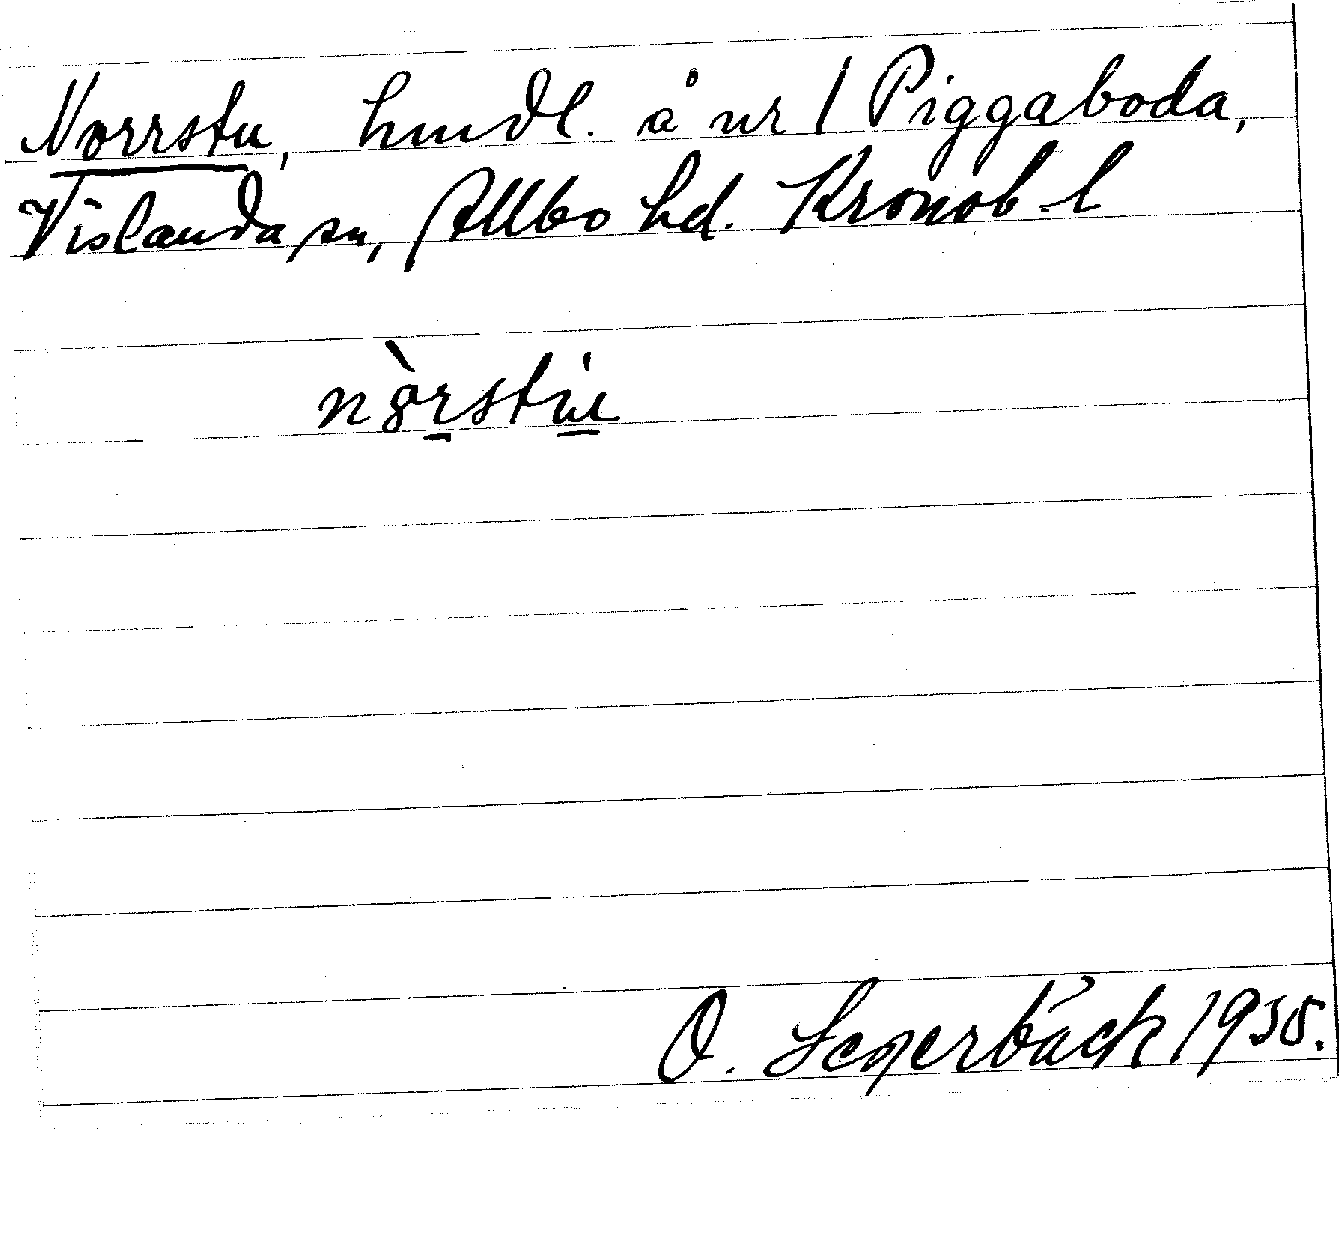 Norrstu, hmdl. å nr 1 Piggaboda,
Vislanda sn, Allbo hd. Kronob. l
nòrstu
O. Segerbäck 1935.